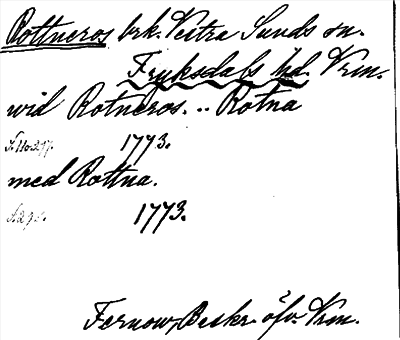 Rottneros brk. Vestra Sunds sn.
Fryksdals hd. Vrm.
wid Rotneros. .. Rotna
1773.
med Rottna.
1773.
Fernow, Beskr. öfv. Vrm.